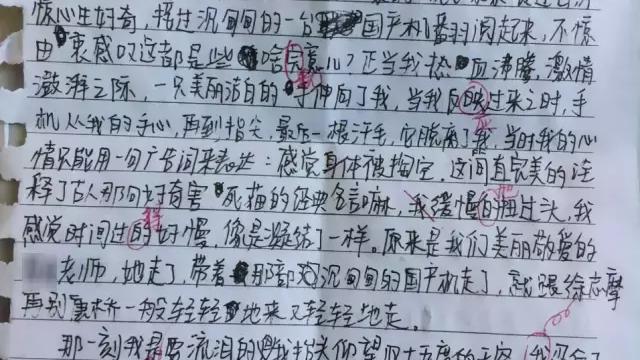 惊心生好奇，接过沉甸甸的一台国产机翻阅起来，不惊
由衷感叹这都是些啥玩意儿？正当我热血沸腾，激情
澎湃之际，一只美丽洁白的手伸向了我，当我反映过来之时，手
机从我的手心，再到指尖，最后一根汗毛，它脱离了我，当时我的心
情只能用一句广告词来表达：感觉身体被掏空，这简直完美的诠
释了古人那句好奇害死猫的经典名言嘛，我缓慢的扭过头，我
感觉时间过的好慢，像是凝结了一样。原来是我们美丽敬爱的
老师，她走了，带着那部沉甸甸的国产机走了，就跟徐志摩
再别康桥一般轻轻地来又轻轻地走。
那一刻我是要流泪的